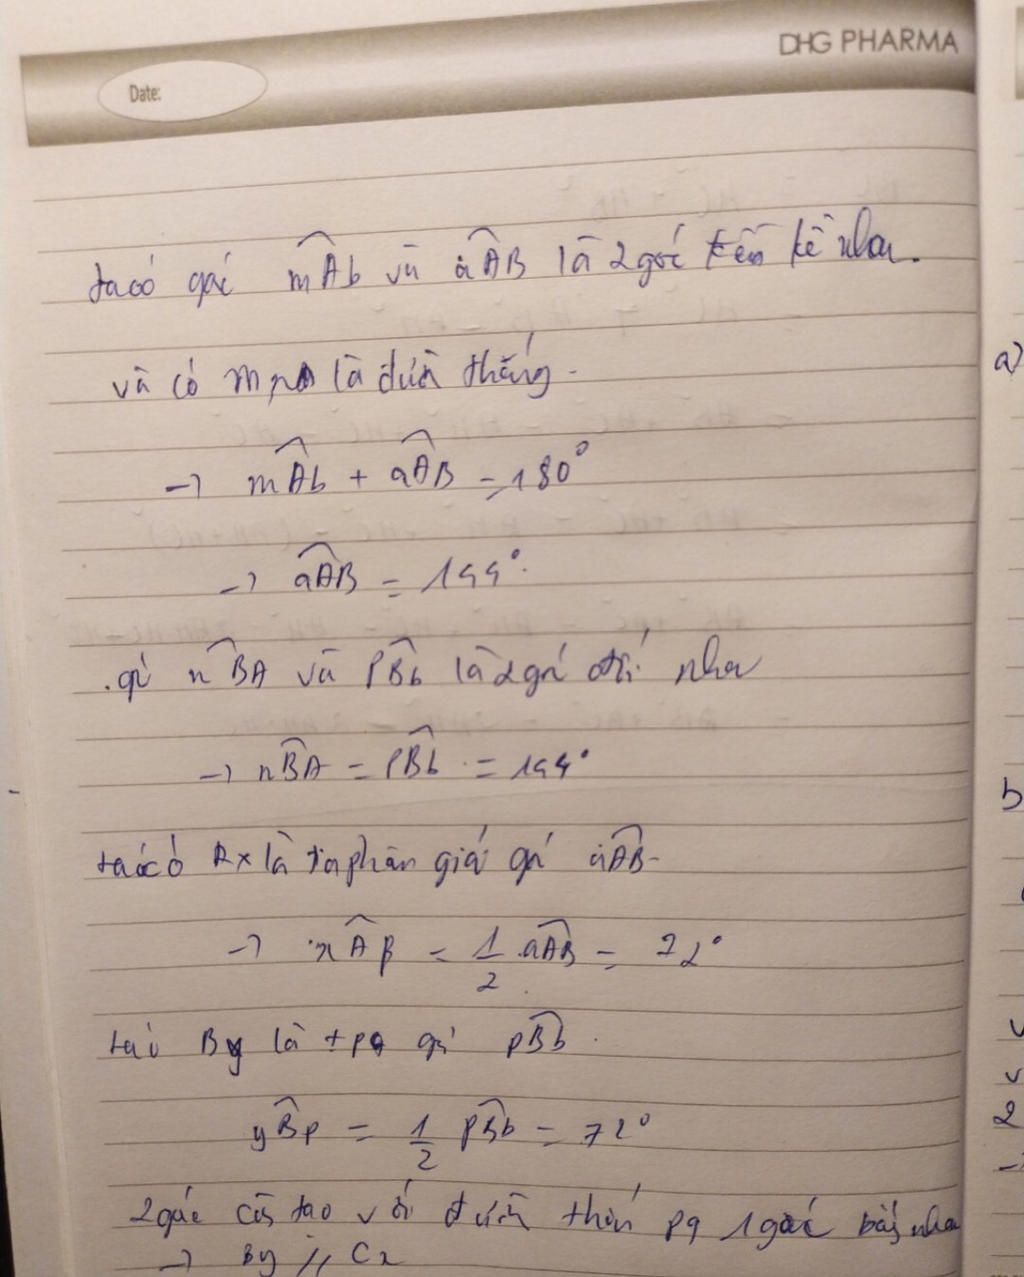 DHG PHARMA
Date:
ta có góc mAb và aAB là 2 góc kề nhau.
và có là đườn thẳng.
→ mAb + aAB = 180°
→ aAB = 144°.
.gó nBA và PBb là 2 gó đđ nha
→ nBA = PBb = 144°
ta có Ax là ta phân giá gó aAB
→ xAB = 1/2 aAB = 72°
ta có By là tpg gó pBb.
yBp = 1/2 PBb = 72°
2 góc cùng tạo với đườn thẳn pq 1 góc bằg nhau
→ By // Cx
a)
b
2